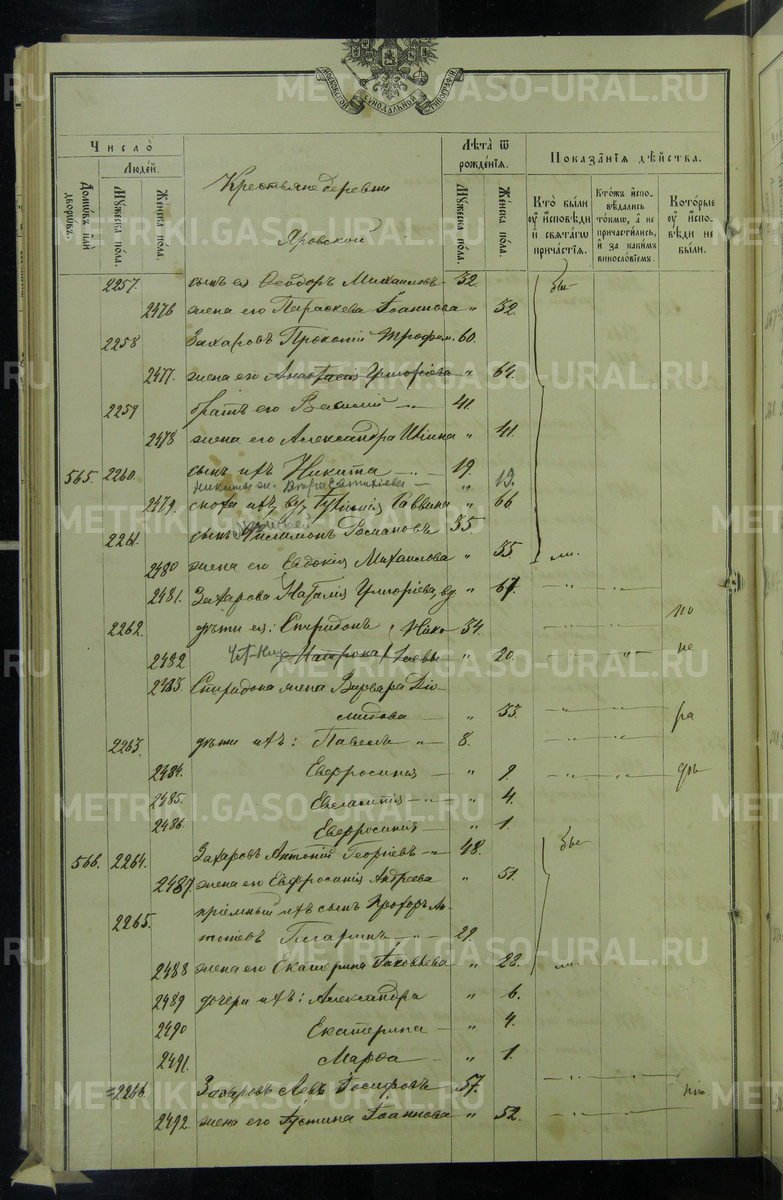 METRIKI.GASO-URAL.RU
МОСКОВСКОЙ СѴНОДАЛЬНОЙ ТИПОГРАФІИ
Число̀
Людѐй.
Домѡвъ и҆лѝ дворѡвъ.
Мꙋ́жеска по́ла.
Же́нска по́ла.
Лѣ́та ѿ рожде́нїѧ.
Мꙋ́жеска по́ла.
Же́нска по́ла.
Показа̑нїѧ дѣ́йства.
Кто̀ бы́ли ᲂу҆ и҆сповѣди и҆ свѧта́гѡ причастїѧ.
Кто́жъ и҆спо-вѣдались то́кмѡ, а҆ не причастились, и҆ за каки́мъ винословїемъ.
Кото́рые ᲂу҆ и҆спо-вѣди не бы́ли.
Крестьяне деревни
Яровской
2257. сынъ ея Ѳеодоръ Михаиловъ 32. бы
2476 жена его Параскева Іоаннова " 32.
2258 Захаровъ Прокопій Трофим. 60.
2477. жена его Анастасія Григоріева " 64.
2259 братъ его Василій 41.
2478 жена его Александра " 41.
565. 2260. сынъ ихъ Никита 19.
Никиты ж. " 19.
2479. сноха ихъ вд. Гаввина " 66
2261. сынъ Филимонъ Романовъ 35
2480 жена его Евдокія Михаилова " 35. ли.
2481. Захарова Наталія Григоріева, вд. " 67.
2262. дѣти ея: Спиридонъ 34. по
2482 Матрона " 20. не
2483. Спиридона жена Варвара Діо-
мидова " 33. ра
2263. дѣти ихъ: Павелъ " 8.
2484. Евфросинія " 9. дѣ
2485. " 4.
2486. Евфросинія " 1.
566. 2264. Захаровъ Антоній Георгіевъ 48. бы
2487. жена его Евфросинія Андреева " 51.
2265. пріемный ихъ сынъ Прохоръ Ан-
тоніевъ Гагаринъ 29.
2488 жена его Екатерина Іаковлева " 28. ли.
2489 дочери ихъ: Александра " 6.
2490 Екатерина " 4.
2491. Марѳа " 1.
2266. Захаровъ Левъ Іосифовъ 57.
2492. жена его Іустина Іоаннова " 52.